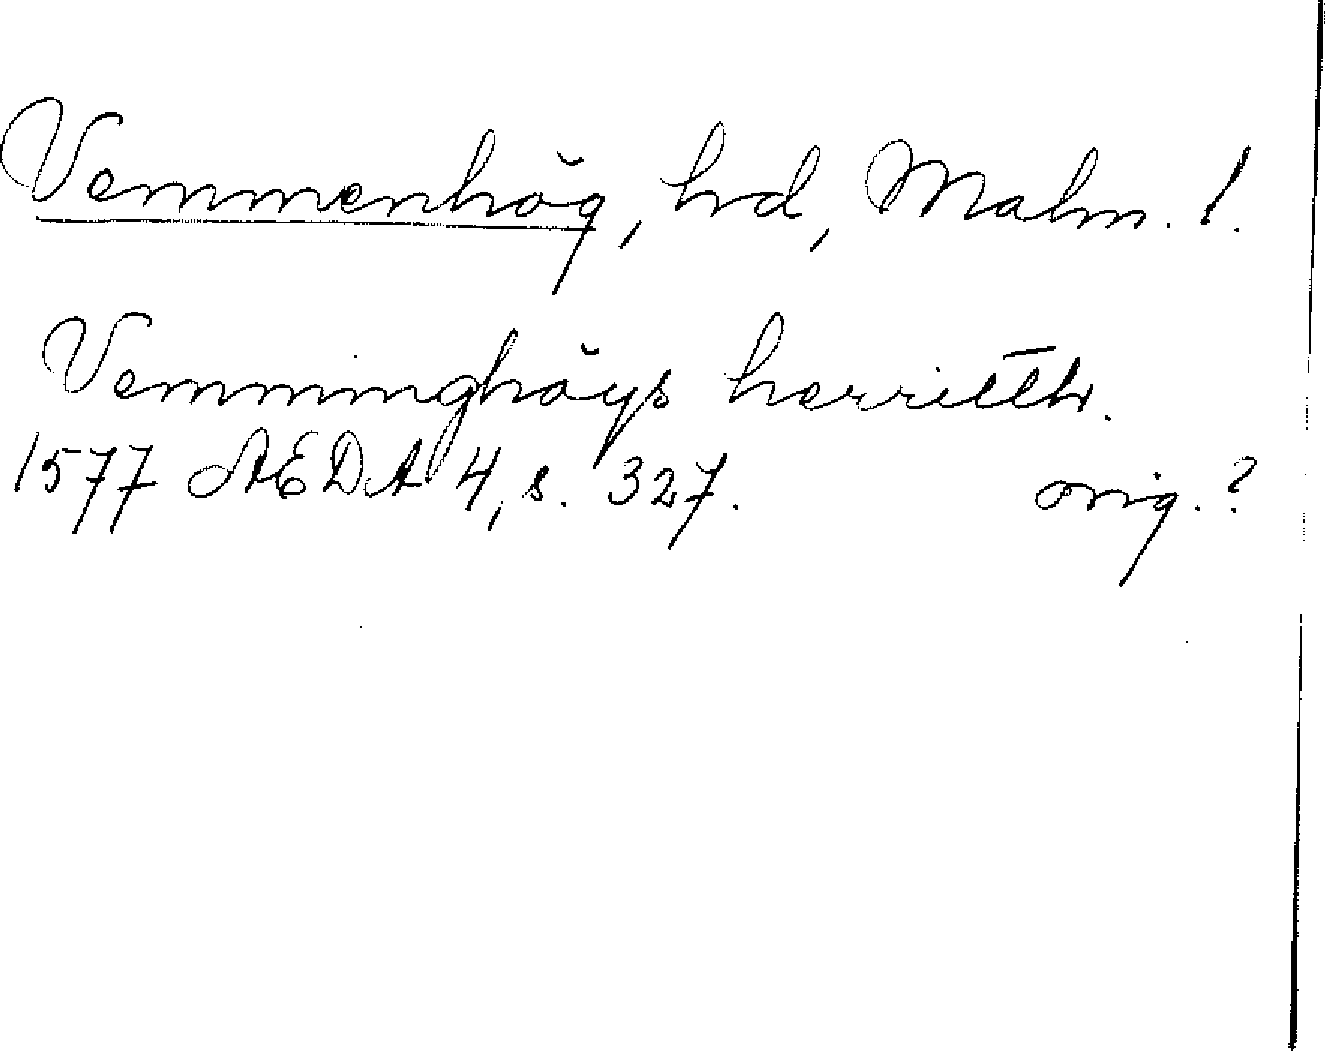 Vemmenhög, hrd, Malm. l.
Vemminghögs herritth.
1577 ÆDA 4, s. 327. orig.?